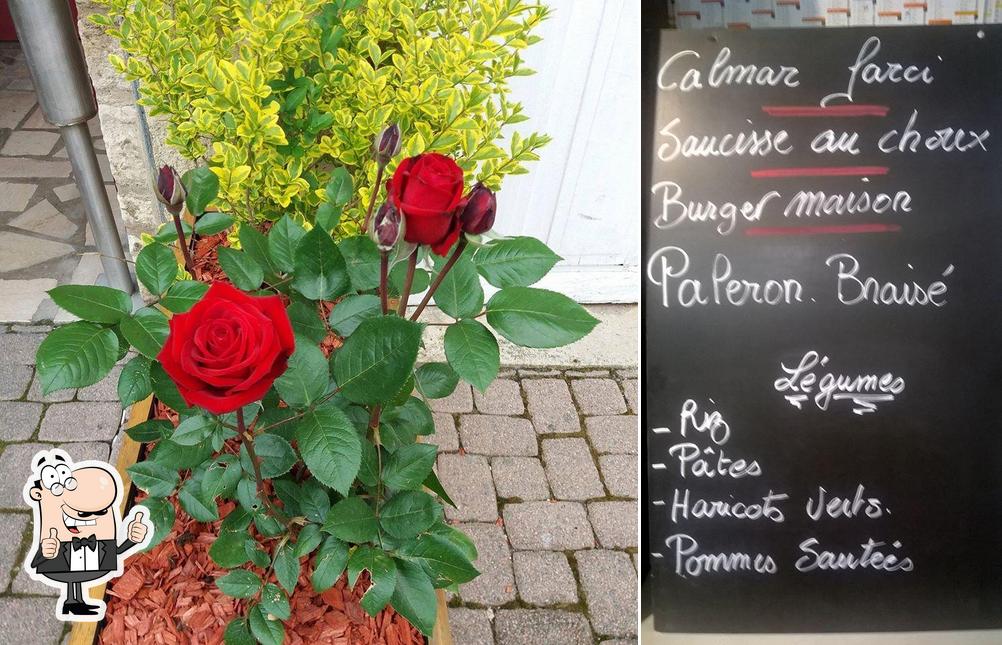 Calmar farci
Saucisse au choux
Burger maison
Paleron. Braisé
Légumes
- Riz
- Pâtes
- Haricots verts.
- Pommes Sautées